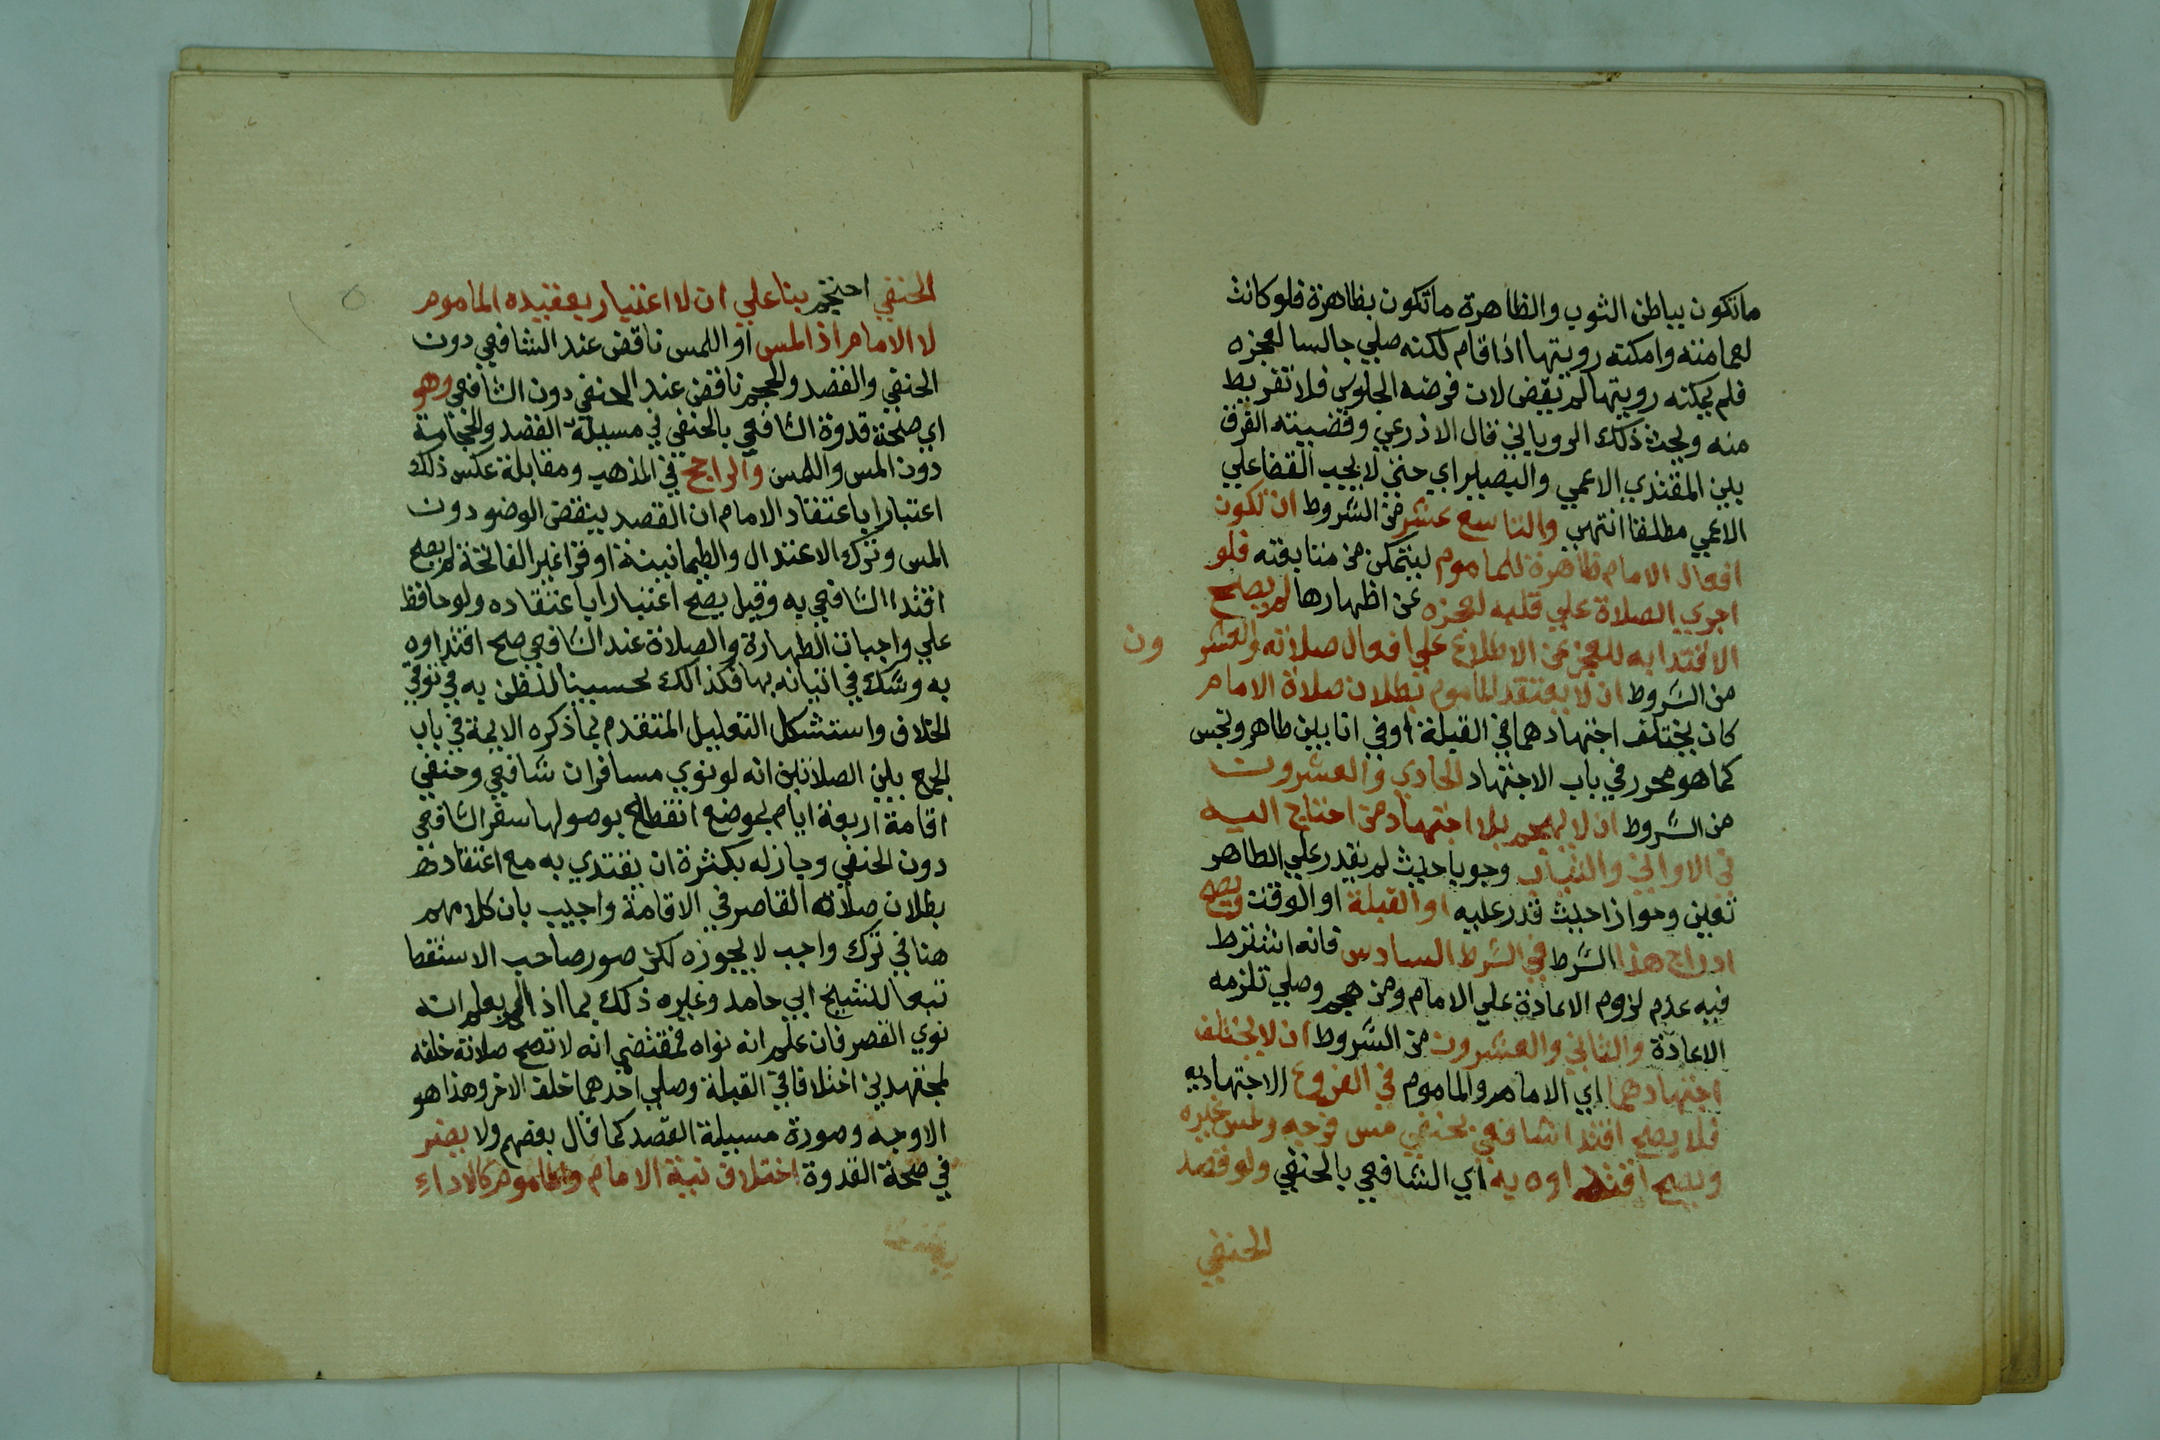 ماتكون بباطن الثوب والظاهرة ماتكون بظاهرة فلوكانت
لعمامته وامكنه رويتها اذا قام لكنه صلي جالسا لعجزه
فلم يمكنه رويتها لم يقض لان فرضه الجلوس فلا تفريط
منه وبحث ذلك الروياني قال الاذرعي وقضيته الفرق
بين المقتدي الاعمي والبصير اي حتي لا يجب القضا علي
الاعمي مطلقا انتهي والتاسع عشر من الشروط ان تكون
افعال الامام ظاهرة للماموم ليتمكن من متابعته فلو
اجري الصلاة علي قلبه لعجزه عن اظهارها لم يصح
الاقتدا به للعجز عن الاطلاع علي افعال صلاته والعشر
ون
من الشروط ان لا يعتقد الماموم بطلان صلاة الامام
كان يختلف اجتهادهما في القبلة اوفي انا بين طاهر ونجس
كما هو محرر في باب الاجتهاد الحادي والعشرون
من الشروط ان لا يهجم بلا اجتهاد من احتاج اليه
في الاواني والثياب وجوبا حيث لم يقدر علي الطاهر
تعين وجوازا حيث قدر عليه او القبلة او الوقت ويصح
ادراج هذا الشرط في الشرط السادس فانه اشترط
فيه عدم لزوم الاعادة علي الامام ومن هجم وصلي تلزمه
الاعادة والثاني والعشرون من الشروط ان لا يختلف
اجتهادهما اي الامام والماموم في الفروع الاجتهاديه
فلا يصح اقتدا شافعي بحنفي مس فرجه ولمس غيره
ويصح اقتداوه به اي الشافعي بالحنفي ولو فصد
الحنفي
الحنفي احتجم بنا علي ان لا اعتبار بعقيده الماموم
لا الامام اذ المس او اللمس ناقض عند الشافعي دون
الحنفي والفصد والحجم ناقض عند الحنفي دون الشافعي وهو
اي صحة قدوة الشافعي بالحنفي في مسيلة الفصد والحجامة
دون المس واللمس والراجح في المذهب ومقابلة عكس ذلك
اعتبارا باعتقاد الامام ان الفصد ينقض الوضو دون
المس وترك الاعتدال والطمانينة او قرا غير الفاتحة لم يصح
اقتدا الشافعي به وقيل يصح اعتبارا باعتقاده ولو حافظ
علي واجبات الطهارة والصلاة عند الشافعي صح اقتداوه
به وشك في اتيانه بها فكذالك تحسينا للظن به في توقي
الخلاف واستشكل التعليل المتقدم بما ذكره الايمة في باب
الجمع بين الصلاتين انه لو نوي مسافران شافعي وحنفي
اقامة اربعة ايام بموضع انقطع بوصولها سفر الشافعي
دون الحنفي وجاز له بكثرة ان يقتدي به مع اعتقاده
بطلان صلاة القاصر في الاقامة واجيب بان كلامهم
هنا في ترك واجب لا يجوزه لكن صور صاحب الاستقصا
تبعا للشيخ ابي حامد وغيره ذلك بما اذا لم يعلم انه
نوي القصر فان علم انه نواه فمقتضي انه لا تصح صلاته خلفه
لمجتهدين اختلافا في القبلة وصلي احدهما خلف الاخر وهذا هو
الاوجه وصورة مسيلة الفصد كما قال بعضهم ولا يضر
في صحة القدوة اختلاف نية الامام والماموم كالاداء